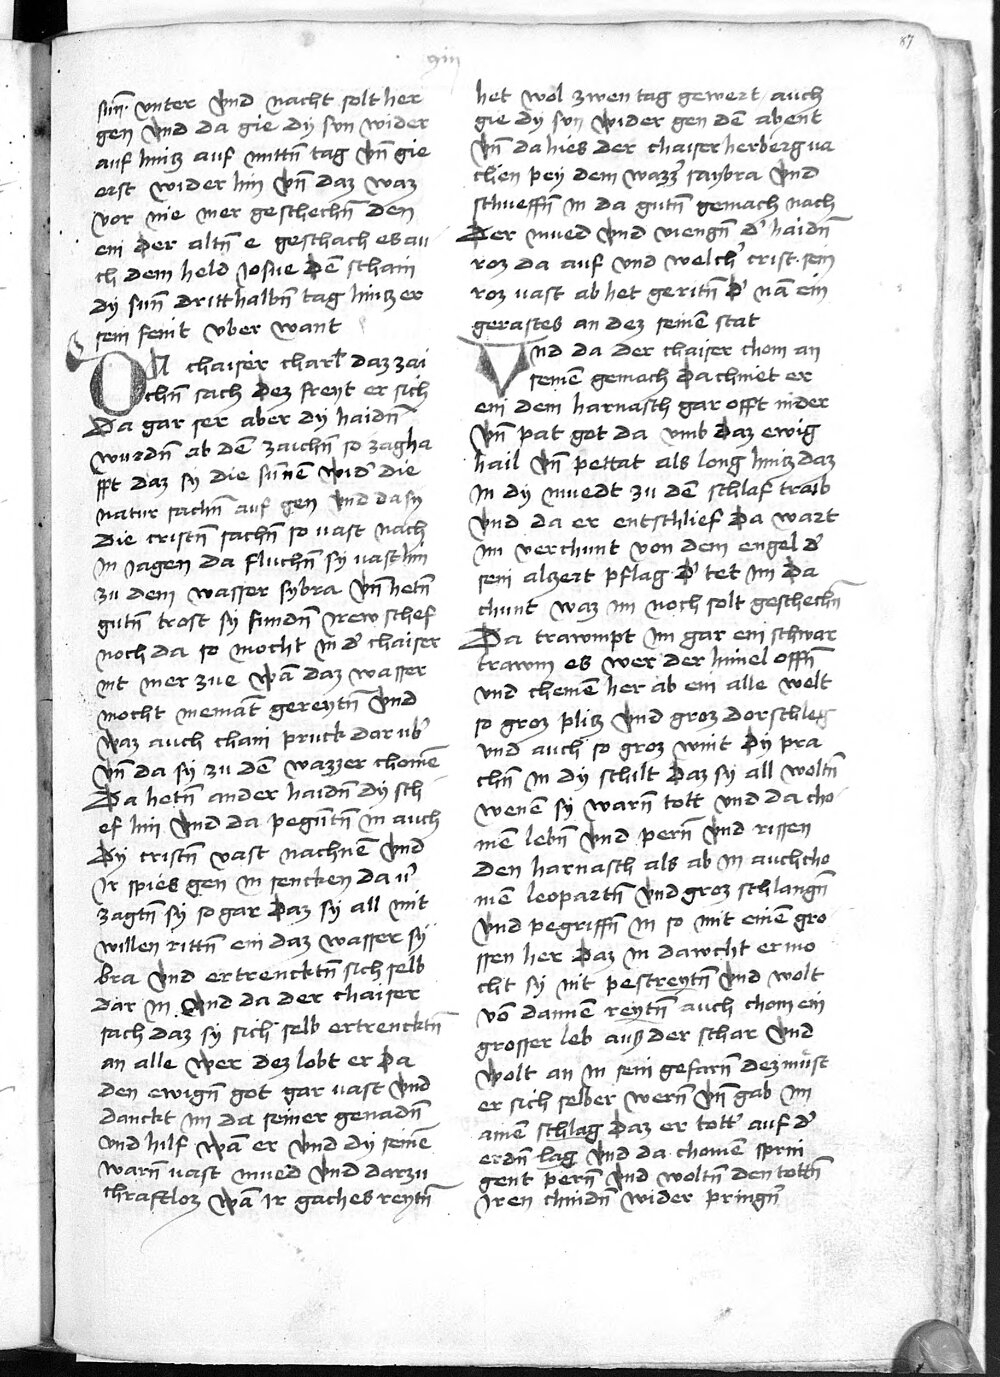 87
sun̄ vnter vnd nacht solt her
gen vnd da gie dy sun wider
auf hintz auf mittn̄ tag vn̄ gie
erst wider hin vn̄ daz waz
vor nie mer geschechn̄ den
ein der altn̄ e geschach es au
ch dem held Josue dē schain
dy sun̄ dritthalbn̄ tag hintz er
sein feint vber want
DA chaiser charl daz zai
chn̄ sach dez freyt er sich
Da gar ser aber dy haidn̄
wurdn̄ ab dē zaichn̄ so zagha
fft daz sy die sunnē wid' die
natur sachn̄ auf gen vnd da sy
die cristn̄ sachn̄ so vast nach
in jagen da fluchn̄ sy vast hin
zu dem wasser sybra vn̄ hetn̄
gutn̄ trost sy fundn̄ irew schef
noch da so mocht in d' chaiser
nit mer zue wā daz wasser
mocht niemāt gereytn̄ vnd
waz auch chain pruck dar vb'
vn̄ da sy zu dē wazzer chomē
Da hetn̄ ander haidn̄ dy sch
ef hin vnd da pegūtn̄ in auch
Dy cristn̄ vast nachnē vnd
ir spies gen in sencken da v'
zagtn̄ sy so gar daz sy all mit
willen rittn̄ ein daz wasser sy
bra vnd ertrencktn̄ sich selb
dar in vnd da der chaiser
sach daz sy sich selb ertrencktn̄
an alle wer dez lobt er da
den ewign̄ got gar vast vnd
danckt im da seiner genadn̄
vnd hilf wā er vnd dy seinē
warn̄ vast mued vnd darzu
chraftloz wā ir gaches reytn̄
het wol zwen tag gewert auch
gie dy sun wider gen dē abent
vn̄ da hies der chaiser herberg va
chen pey dem wazz' saybra vnd
schueffn̄ in da gutn̄ gemach nach
Der mued vnd viengn̄ d' haidn̄
roz da auf vnd welch' crist sein
roz vast ab het geritn̄ d' nā ein
gerastes an dez seinē stat
Vnd da der chaiser chom an
seinē gemach da chniet er
ein dem harnasch gar offt nider
vn̄ pat got da vmb daz ewig
hail vn̄ pettat als long hintz daz
in dy muedt zu dē schlaf traib
vnd da er entschlief da wart
im verchunt von dem engel d'
sein alzeit pflag d' tet im da
chunt waz im noch solt geschechn̄
Da trawmpt im gar ein schwar
trawm es wer der himel offn̄
vnd chemē her ab ein alle welt
so groz plitz vnd groz dorschleg
vnd auch so groz wint dy pra
chn̄ in dy schilt daz sy all woltn̄
wenē sy warn̄ tott vnd da cho
men lebn̄ vnd pern̄ vnd rissen
den harnasch als ab in auch cho
men leopartn̄ vnd groz schlangn̄
vnd pegriffn̄ in so mit einem gro
ssen her daz in dawcht er mo
cht sy nit pestreytn̄ vnd wolt
vō dannen reytn̄ auch chom ein
grosser leb auß der schar vnd
wolt an in sein gefarn̄ dez müst
er sich selber wern̄ vn̄ gab im
ainen schlag daz er tott' auf d'
erdn̄ lag vnd da chomē sprin
gent pern̄ vnd woltn̄ den tottn̄
Iren chindn̄ wider pringn̄